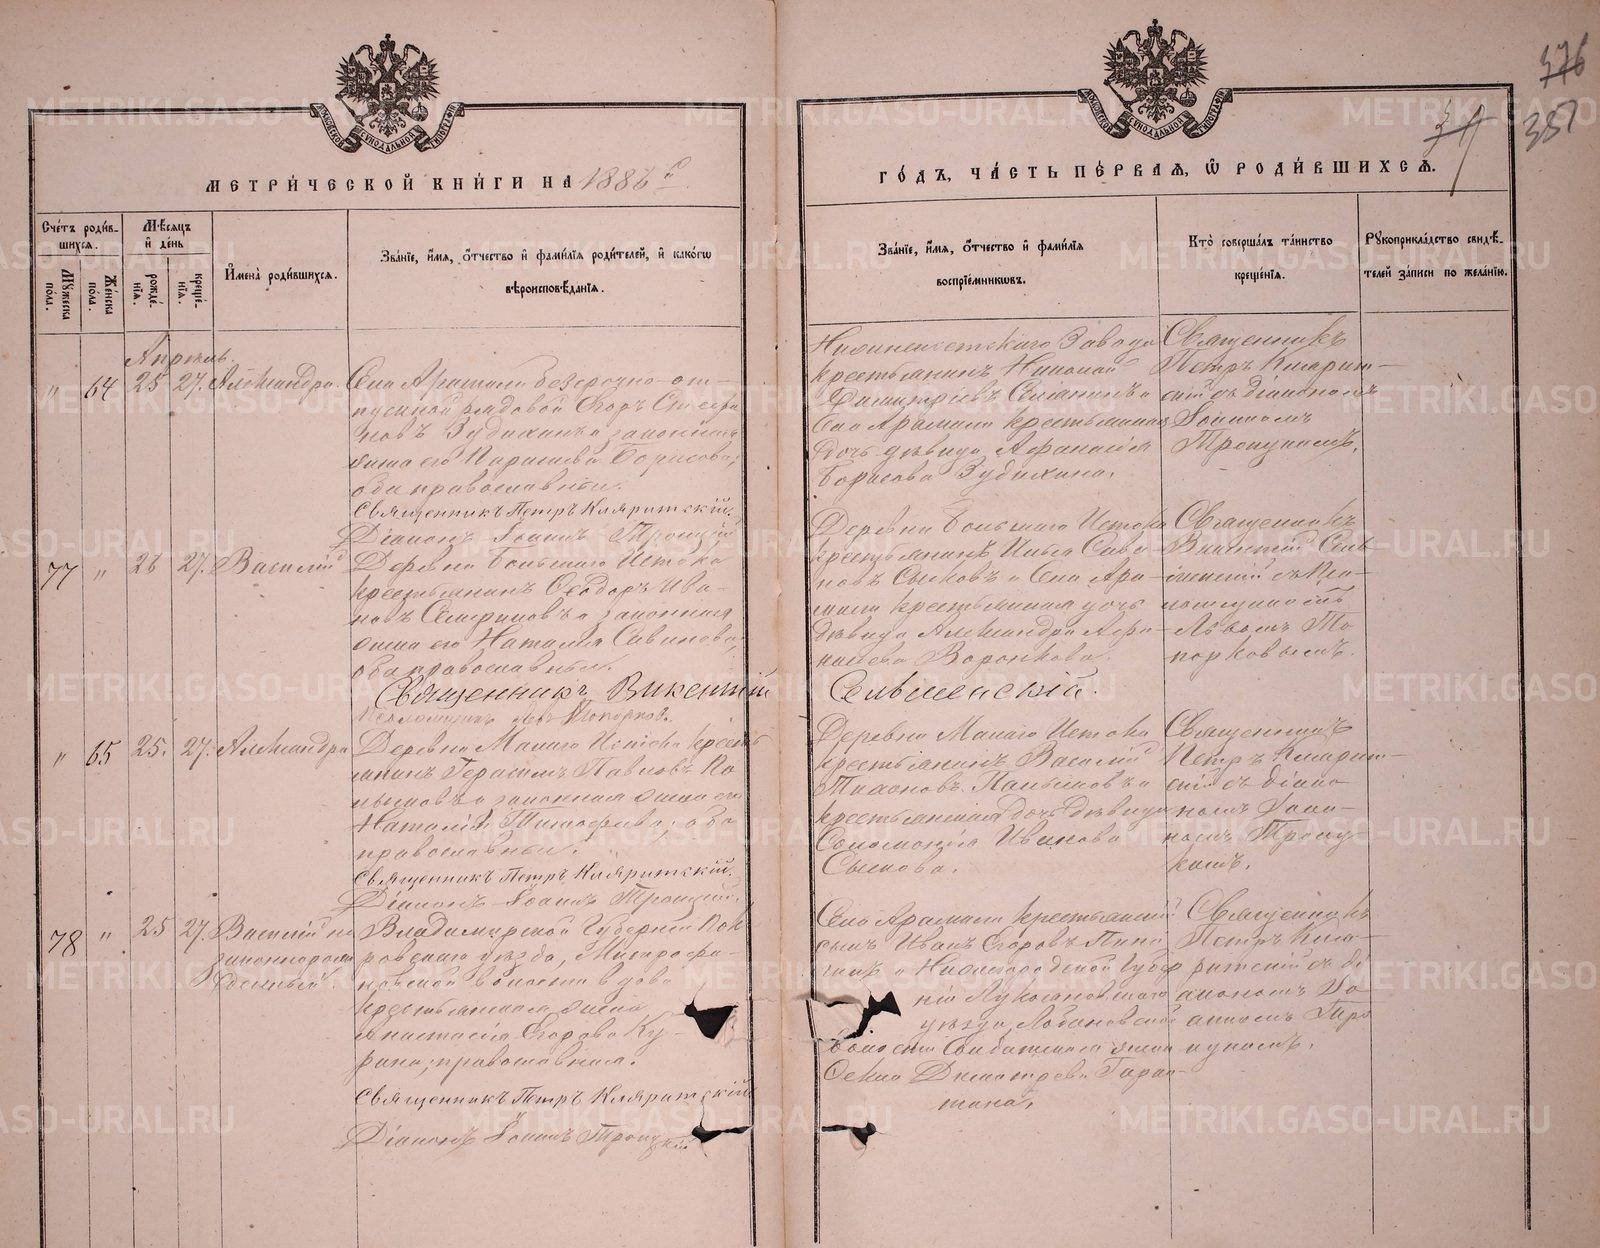 376
371
351
МЕТРИ́ЧЕСКОЙ КНИ́ГИ НА 1886 г.
ГО́ДЪ, ЧА́СТЬ ПЕ́РВАЯ, Ѡ РОДИ́ВШИХСЯ.
Сче́тъ роди́в-
шихся.
Мужеска
пола.
Женска
пола.
Мѣсяцъ
и день
рожде-
нїя.
креще-
нїя.
Имена̀ роди́вшихся.
Зва́нїе, и́мя, о́тчество и фами́лїя роди́телей, и како́гѡ
вѣроисповѣ́данїя.
Зва́нїе, и́мя, о́тчество и фами́лїя
воспрїе́мникѡвъ.
Кто̀ соверша́лъ та́инство
креще́нїя.
Рукоприкла́дство свидѣ́-
телей за́писи по жела́нїю.
Апрѣль.
" 64 25 27. Александра.
Села Арамали безсрочно-от-
пускной рядовой Егоръ Стефа-
новъ Зубихинъ и законная
жена его Параскева Борисова;
оба православные.
Священникъ Петръ Кляритскій.
Діаконъ Іоаннъ Троицкій
крестьянинъ Николай
Села Арамали крестьянская
дочь дѣвица Афанасія
Борисова Зубихина.
Священникъ
Петръ Кляритскій
съ діакономъ
Іоанномъ
Троицкимъ.
77 " 26 27. Василій
Деревни Большаго Истока
крестьянинъ Ѳеодоръ Ива-
новъ и законная
жена его Наталія Савинова;
оба православные.
Священникъ Викентій Сельменскій.
Псаломщикъ Левъ Топорковъ.
Деревни Большаго Истока
крестьянинъ Илья Сави-
новъ и Села Ара-
мали крестьянская дочь
дѣвица Александра
Воронкова.
Священникъ
Викентій Сель-
менскій съ Пса-
ломщикомъ
Львомъ То-
порковымъ.
" 65 25. 27. Александра
Деревни Малаго Истока кресть-
янинъ Герасимъ Павловъ
и законная жена его
Наталія Тимофеева; оба
православные.
Священникъ Петръ Кляритскій.
Діаконъ Іоаннъ Троицкій.
Деревни Малаго Истока
крестьянинъ Василій
Тихоновъ и
крестьянская дочь дѣвица
Соломонія Иванова
Священникъ
Петръ Кларит-
скій съ діако-
номъ Іоан-
номъ Троиц-
кимъ.
78 " 25 27. Василій не
законнорож
денный.
Владимірской Губерніи Пок-
ровскаго уѣзда, Митрофа-
новской волости вдова
крестьянская жена
Анастасія Егорова Ку-
рина; православная.
Священникъ Петръ Кляритскій
Діаконъ Іоаннъ Троицкій
Села Арамали крестьянскій
сынъ Иванъ Егоровъ
и Нижегородской Губер
ніи Лукояновскаго
уѣзда, Лобановской
волости жена
Дмитріева
Священникъ
Петръ Кля-
ритскій съ ді
акономъ Іо
анномъ Тро
ицкимъ.
METRIKI.GASO-URAL.RU